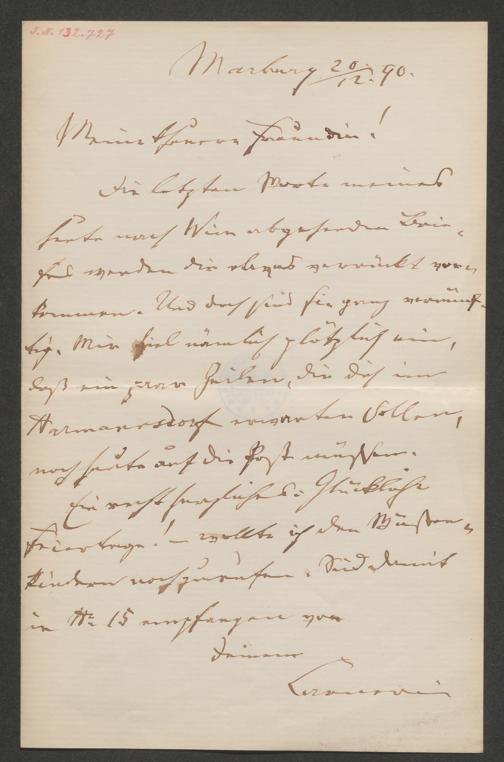 I.N. 132.727
Marburg 20/12. 90.
Meine theuere Freundin!
Die letzten Worte meines
heute nach Wien abgehenden Brie-
fes werden dir etwas verrückt vor-
kommen. Und doch sind sie ganz vernünf-
tig. Mir fiel nämlich plötzlich ein,
daß ein paar Zeilen, die dich in
Harmannsdorf erwarten sollen,
noch heute auf die Post müssen.
Ein recht herzliches: Glückliche
Feiertage! – wollte ich den
kindern noch zurufen. Sei damit
in No 15 empfangen von
Deinem
Carneri